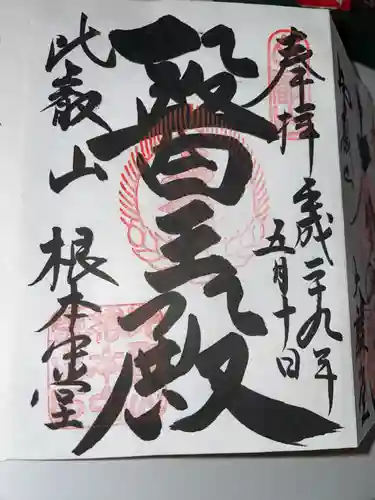 奉拝
平成二十九年
五月十日
醫王殿
比叡山
根本中堂